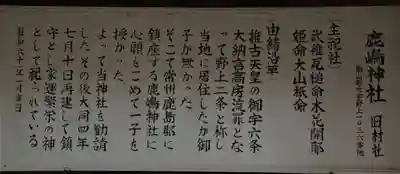 鹿嶋神社 旧村社
主祀社
武雅瓦槌命木花開耶
姫命大山祇命
由緒沿革
推古天皇の御宇六条
大納言高房流罪とな
って野上二条と称し
当地に居住したが御
子が無かった
そこで常州鹿島郡に
鎮座する鹿嶋神社に
心願をこめて一子を
授かった
よって当神社を勧請
したその後大同四年
七月十日再建して鎮
守とし家運繁栄の神
として祀られている
昭和六十三年一月吉日